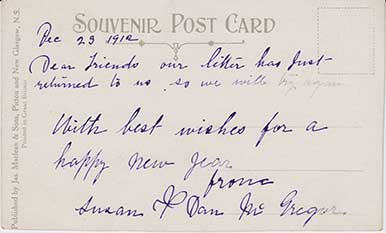 SOUVENIR POST CARD
Dec 23 1912
Dear Friends our letter has Just
returned to us so we will try again
With best wishes for a
happy New Year
from
Susan & Dan McGregor
Published by Jas. McLean & Sons, Pictou and New Glasgow, N.S.
Printed in Great Britain